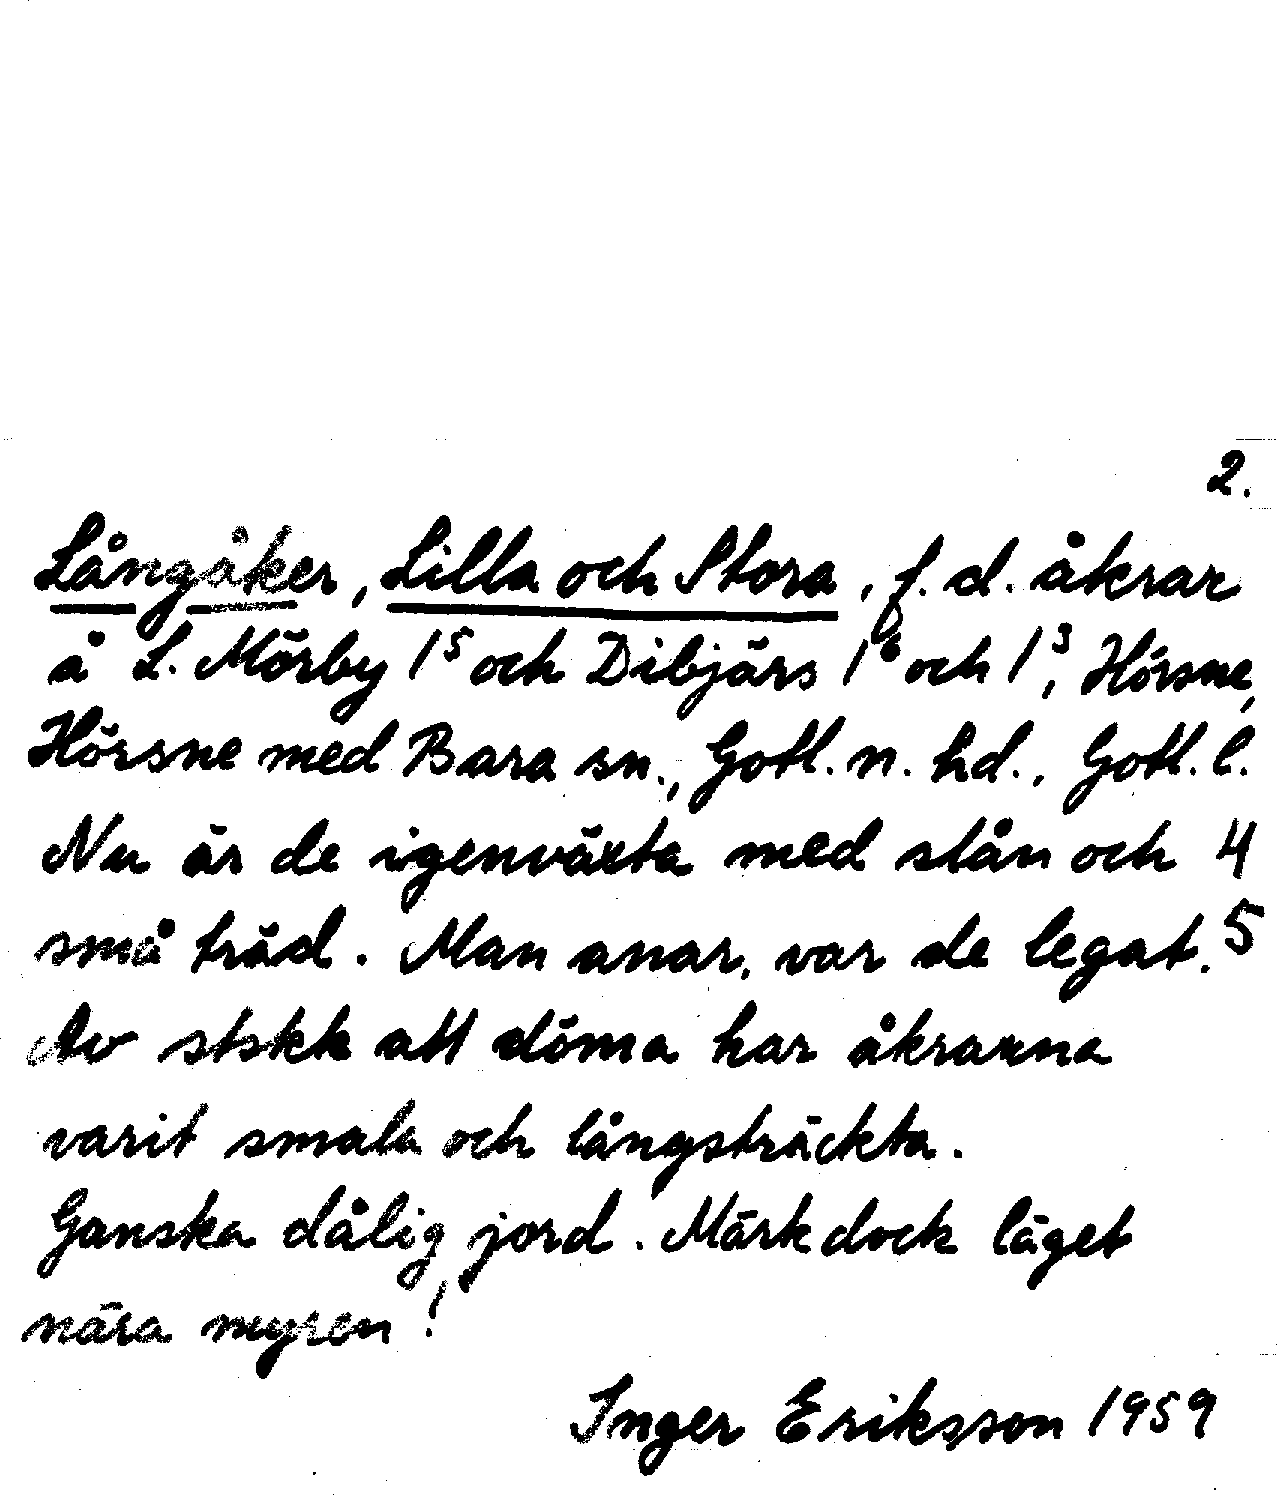 2.
Långåker, Lilla och Stora, f. d. åkrar
å L. Mörby 1⁵ och Dibjärs 1⁶ och 1³, Hörsne,
Hörsne med Bara sn., Gotl. n. hd., Gotl. l.
Nu är de igenväxta med slån och 4
små träd. Man anar, var de legat. 5
Av stskk att döma har åkrarna
varit smala och långsträckta.
Ganska dålig jord. Märk dock läget
nära myren!
Inger Eriksson 1959